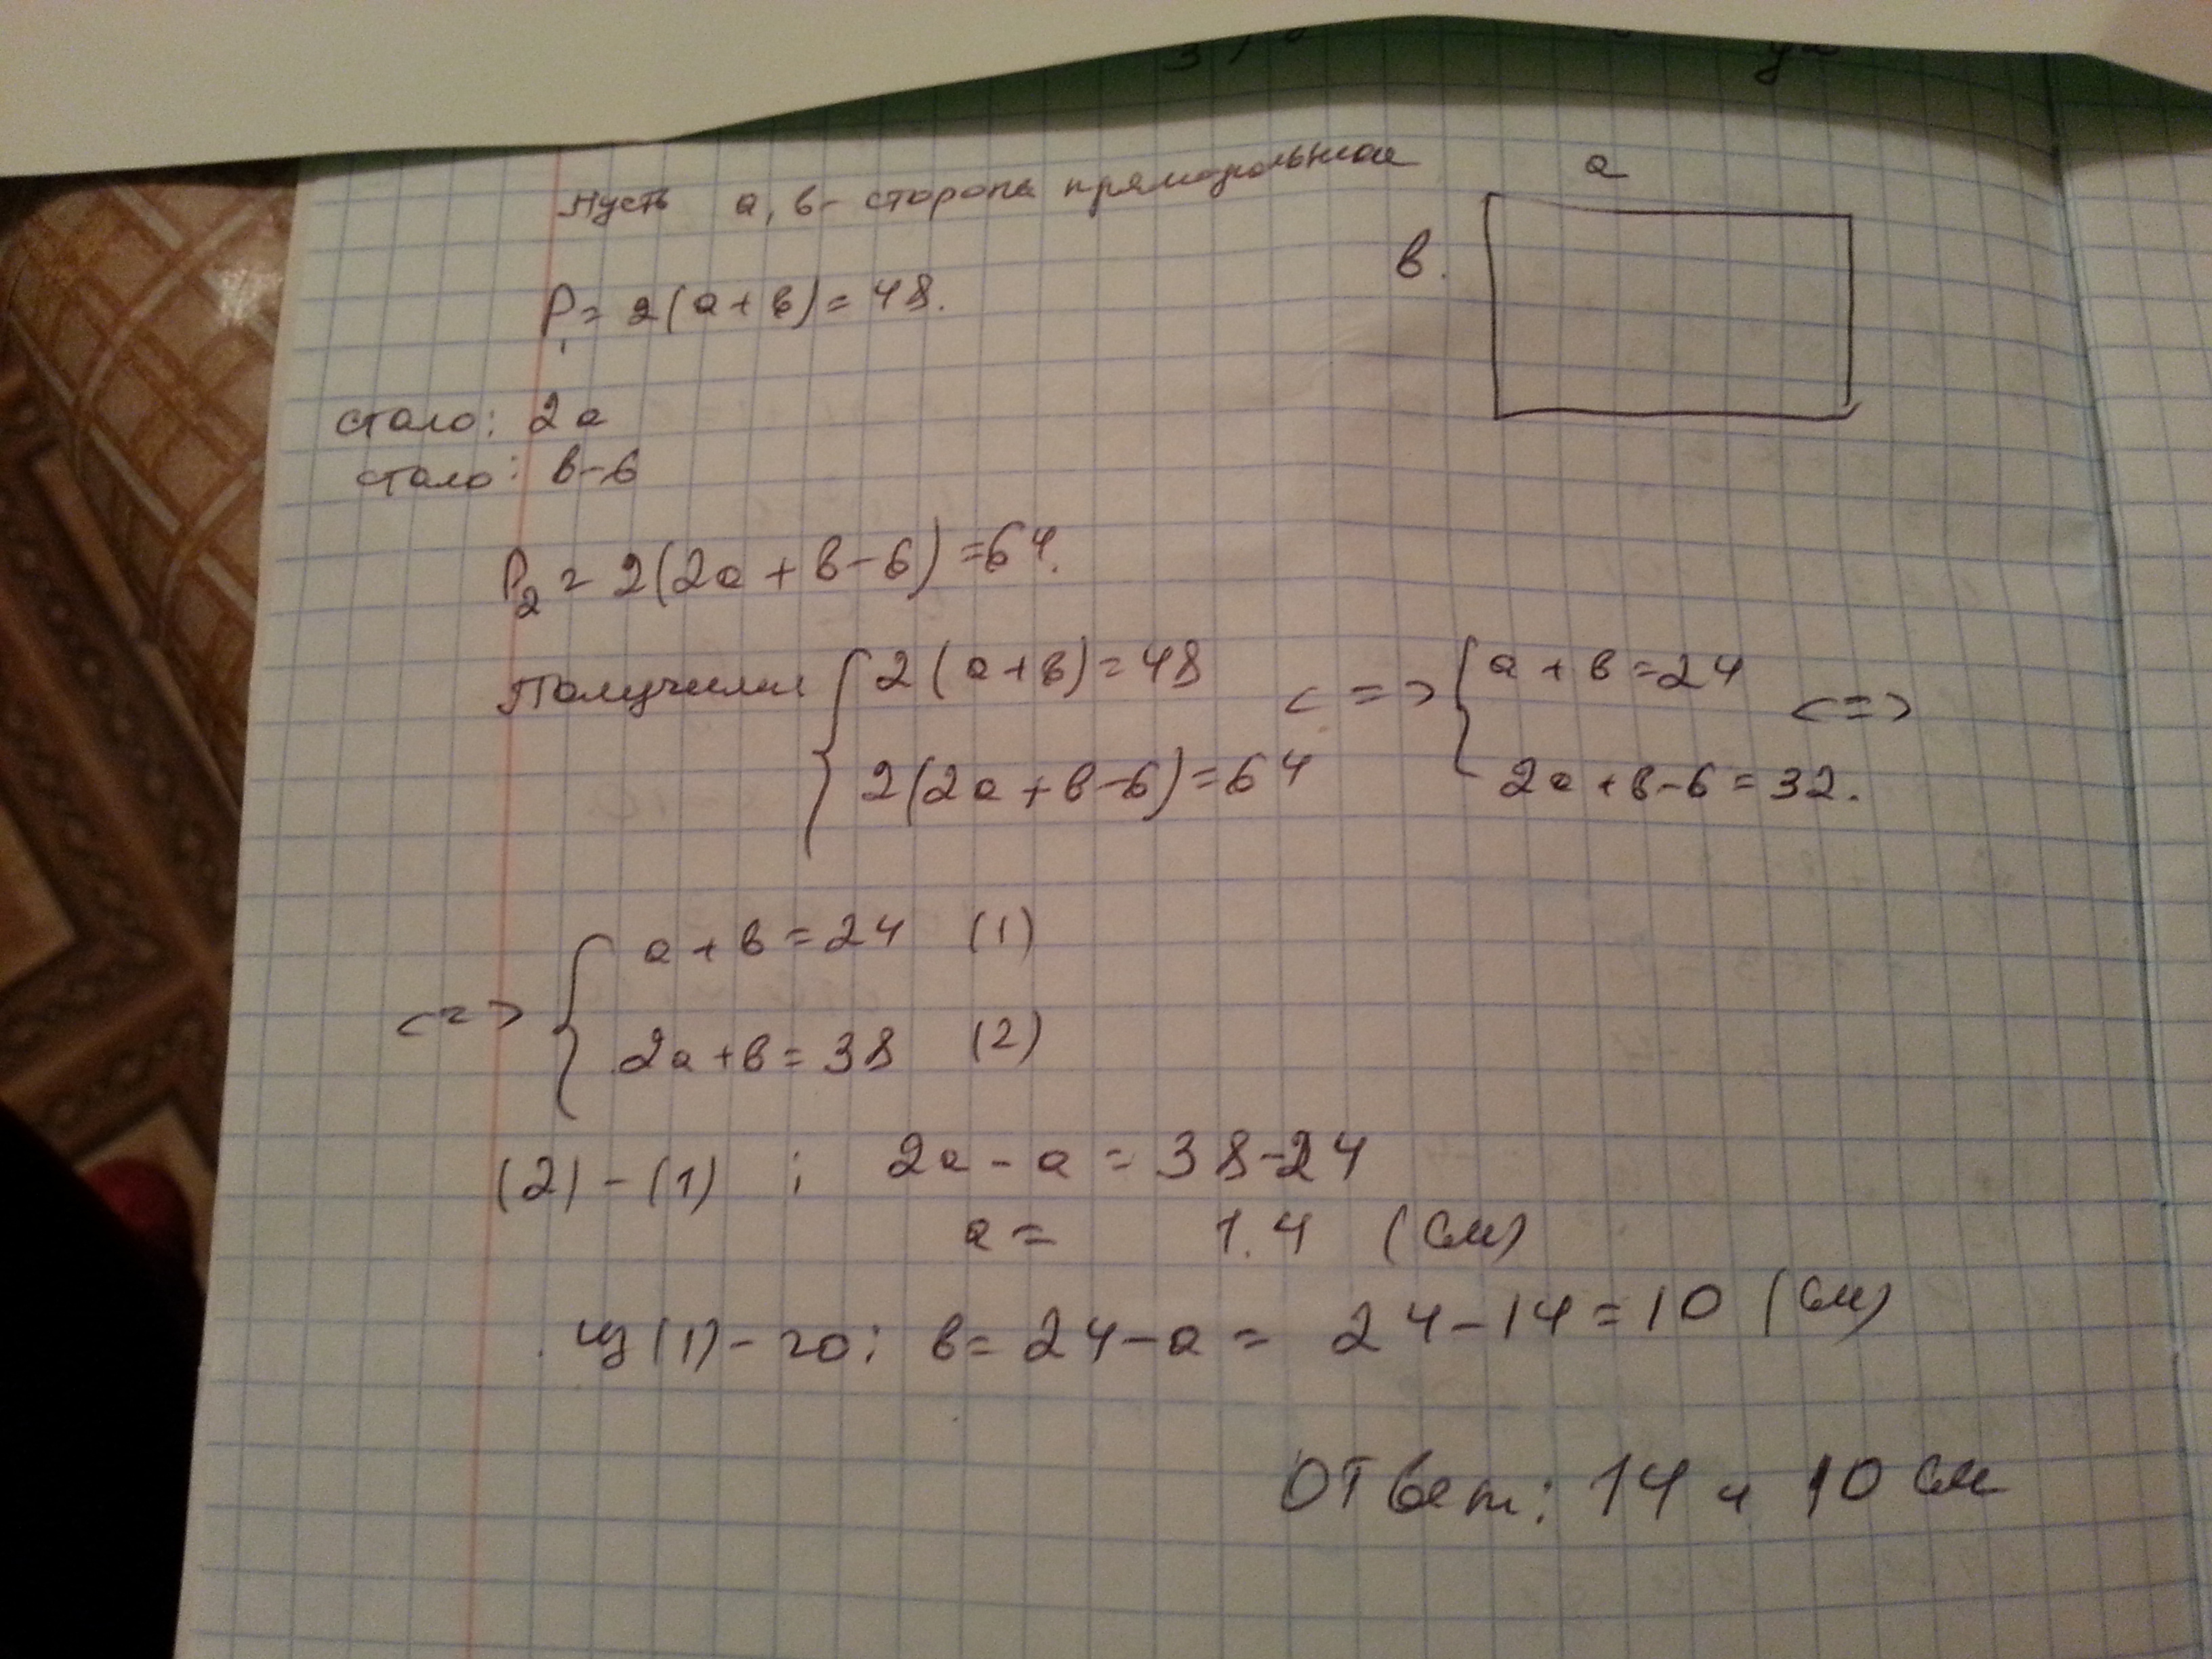 Пусть a, в - стороны прямоугольника
a
в.
P₁ = 2(a+в) = 48.
стало: 2a
стало: в-6
P₂ = 2(2a+в-6) = 64.
Получили { 2(a+в)=48 <=> { a+в=24 <=>
2(2a+в-6)=64 2a+в-6=32.
<=> { a+в=24 (1)
2a+в=38 (2)
(2)-(1) ; 2a-a = 38-24
a = 14 (см)
из (1)-го: в= 24-a = 24-14=10 (см)
Ответ: 14 и 10 см